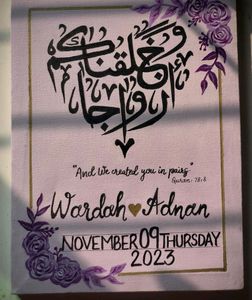 وخلقناكم
أزواجا
"And We created you in pairs"
Quran - 78:8
Wardah Adnan
NOVEMBER 09 THURSDAY
2023